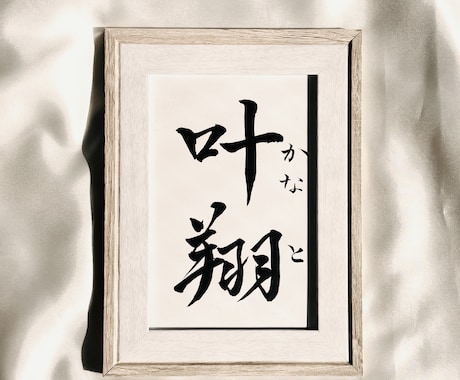 叶翔
かなと